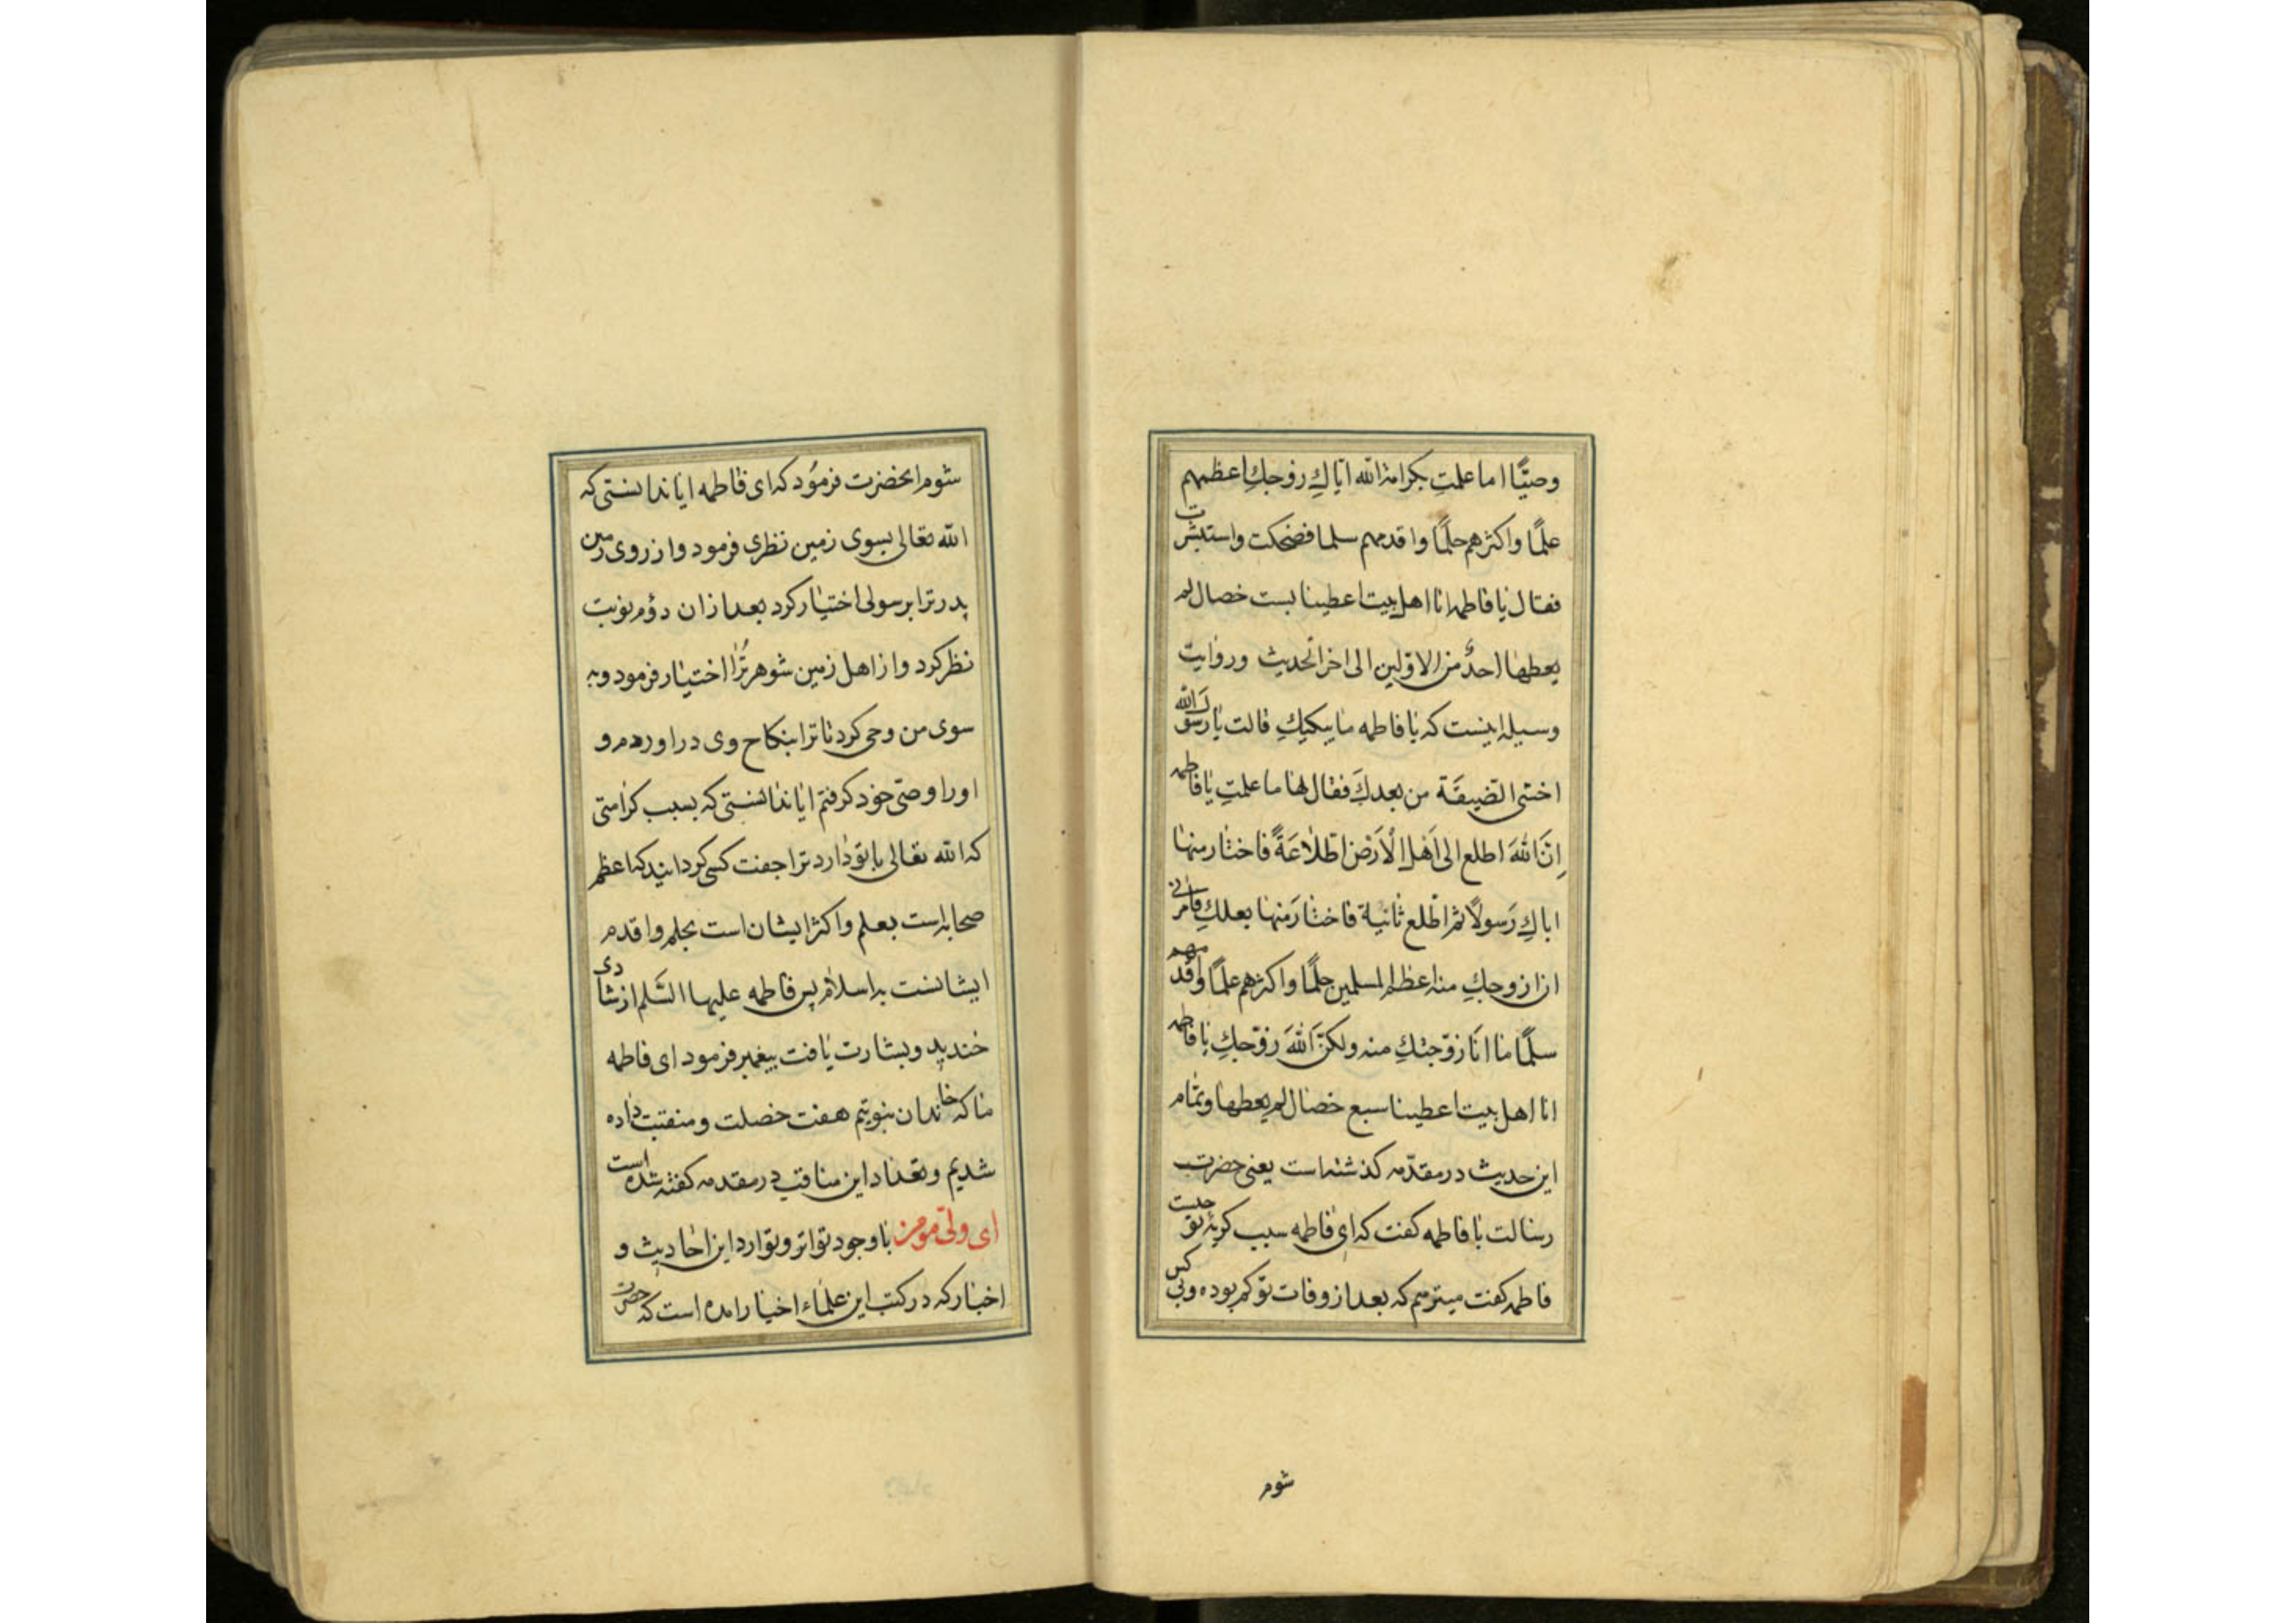 وصیًّا اما علمتِ بکرامة الله ایاكِ زوجكِ اعظمهم
علمًا واکثرهم حلمًا واقدمهم سلما فضحکت واستبشرت
فقال یا فاطمه انا اهل بیت اعطینا بست خصال لم
یعطها احدٌ من الاوّلین الی اخر الحدیث وروایت
وسیله اینست که یا فاطمه ما یبکیكِ قالت یا رسول الله
اخشی الضیقة من بعدكَ فقال لها ما علمتِ یا فاطمه
اِنَّ اللهَ اطلع الی اَهل الْاَرض اِطّلاعَةً فاختار منها
اباكِ رَسولًا ثم اطّلع ثانیة فاختارَ منها بعلكِ فامرنی
ان ازوجكِ منه اعظم المسلمین حلمًا واکثرهم علمًا واقدمهم
سلمًا ما انَا زوّجتكِ منه ولکنّ اللهَ زوّجكِ یا فاطمه
انا اهل بیت اعطینا سبع خصال لم یعطها وتمام
این حدیث در مقدّمه کذشته است یعنی حضرت
رسالت با فاطمه کفت که ای فاطمه سبب کریۀ تو چیست
فاطمه کفت میترسم که بعد از وفات تو کم بوده وبی کس
شوم
شوم انحضرت فرمُود که ای فاطمه ایا ندانستی که
الله تعالی بسوی زمین نظری فرمود واز روی زمین
پدر ترا برسولی اختیار کرد بعد از ان دوُم نوبت
نظر کرد واز اهل زمین شوهر تُرا اختیار فرمود وبه
سوی من وحی کرد تا ترا بنکاح وی در اوردم و
اورا وصیّ خود کرفتم ایا ندانستی که بسبب کرامتی
که الله تعالی با تو دارد ترا جفت کسی کردانید که اعظم
صحابه است بعلم واکثر ایشان است بحلم واقدم
ایشانست به اسلام پس فاطمه علیها السَّلم از شادی
خندید وبشارت یافت پیغمبر فرمود ای فاطمه
ما که خاندان نبوتیم هفت خصلت ومنقبت داده
شدیم وتعداد این مناقب در مقدمه کفته شده است
ای ولیّ مومن با وجود تواتر وتوارد این احادیث و
اخبار که در کتب این علماء اخیار امده است که حضرت